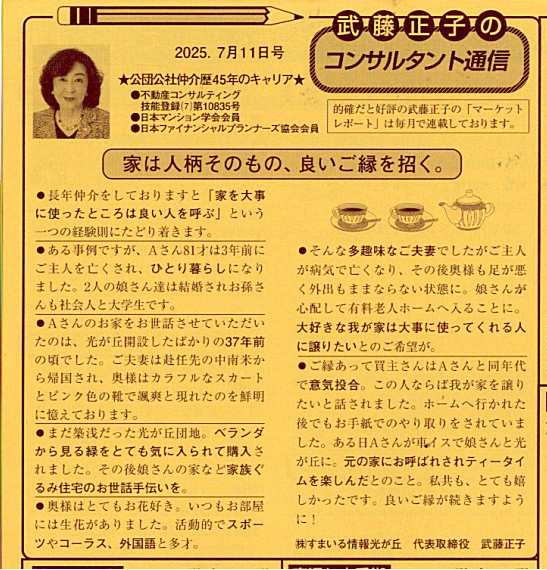 武藤正子の
コンサルタント通信
2025. 7月11日号
★公団公社仲介歴45年のキャリア★
●不動産コンサルティング
技能登録(7)第10835号
●日本マンション学会会員
●日本ファイナンシャルプランナーズ協会会員
的確だと好評の武藤正子の「マーケット
レポート」は毎月で連載しております。
家は人柄そのもの、良いご縁を招く。
●長年仲介をしておりますと「家を大事
に使ったところは良い人を呼ぶ」という
一つの経験則にたどり着きます。
●ある事例ですが、Aさん81才は3年前に
ご主人を亡くされ、ひとり暮らしになり
ました。2人の娘さん達は結婚されお孫さ
んも社会人と大学生です。
●Aさんのお家をお世話させていただい
たのは、光が丘開設したばかりの37年前
の頃でした。ご夫妻は赴任先の中南米か
ら帰国され、奥様はカラフルなスカート
とピンク色の靴で颯爽と現れたのを鮮明
に憶えております。
●まだ築浅だった光が丘団地。ベランダ
から見る緑をとても気に入られて購入さ
れました。その後娘さんの家など家族ぐ
るみ住宅のお世話手伝いを。
●奥様はとてもお花好き。いつもお部屋
には生花がありました。活動的でスポー
ツやコーラス、外国語と多才。
●そんな多趣味なご夫妻でしたがご主人
が病気で亡くなり、その後奥様も足が悪
く外出もままならない状態に。娘さんが
心配して有料老人ホームへ入ることに。
大好きな我が家は大事に使ってくれる人
に譲りたいとのご希望が。
●ご縁あって買主さんはAさんと同年代
で意気投合。この人ならば我が家を譲り
たいと話されました。ホームへ行かれた
後でもお手紙でのやり取りをされていま
した。ある日Aさんがボイスで娘さんと光
が丘に。元の家にお呼ばれされティータイ
ムを楽しんだとのこと。私共も、とても嬉
しかったです。良いご縁が続きますよう
に！
㈱すまいる情報光が丘 代表取締役 武藤正子